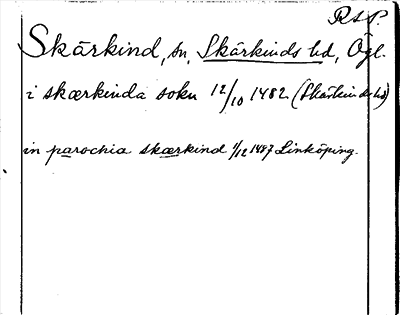 RSP.
Skärkind, sn, Skärkinds hd, Ögl.
i skærkinda sokn 12/10 1482 (Skärkinds hd)
in parochia skærkind 1/12 1487 Linköping.